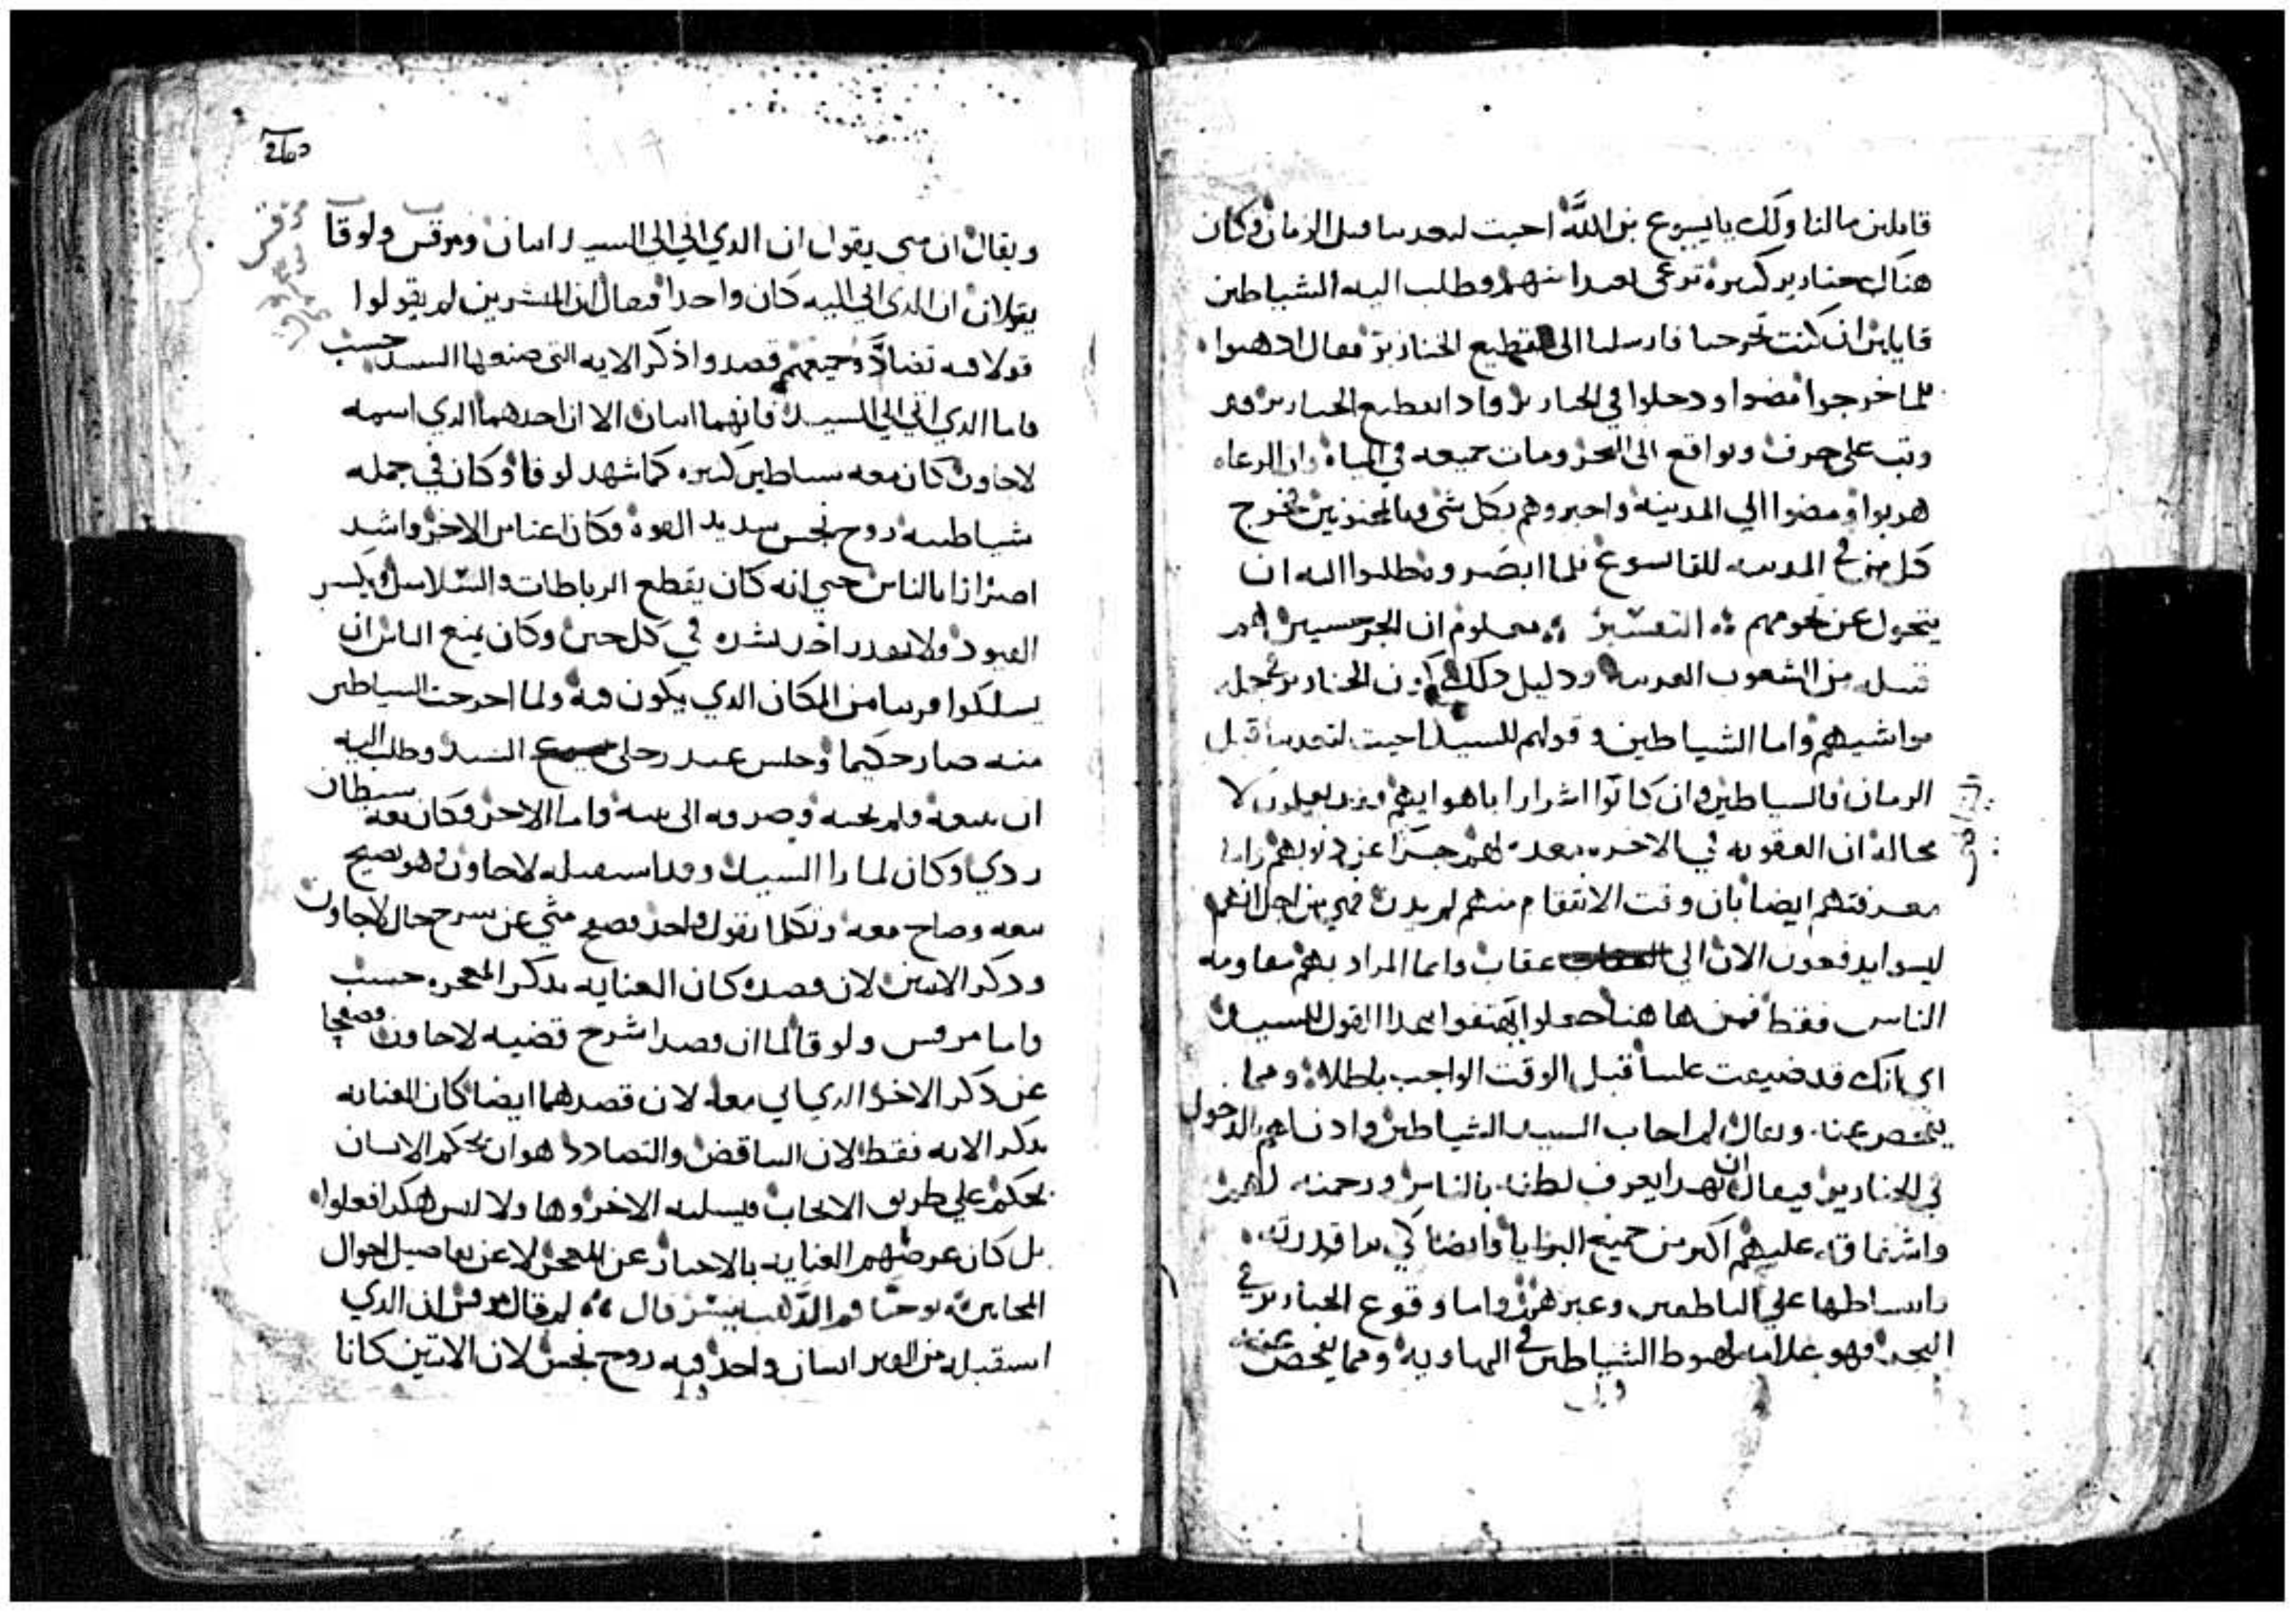 قايلين مالنا ولك يا يسوع بن الله اجيت لتعدبنا قبل الزمان وكان
هناك خنازير كتيره ترعى بعيدا منهم وطلب اليه الشياطين
قايلين ان كنت تخرجنا فارسلنا الى قطيع الخنازير فقال ادهبوا
فلما خرجوا مضوا ودخلوا في الخنازير وادا بقطيع الخنازير قد
وتب على جرف وتواقع الى البحر ومات جميعه في المياه وان الرعاه
هربوا ومضوا الي المدينه واخبروهم بكل شي وبالمجنونين فخرج
كل من في المدينه للقا يسوع فلما ابصروه طلبوا اليه ان
يتحول عن تخومهم التفسير معلوم ان الجرجسيين هم
قبيله من الشعوب الغريبه ودليل دلك كون الخنازير من جمله
مواشيهم واما الشياطين وقولهم للسيد اجيت لتعدبنا قبل
الزمان فالشياطين وان كانوا اشرارا باهوايهم فقد يعلمون لا
محالة ان العقوبه في الاخره معده لهم جزا عن دنوبهم وايضا
معرفتهم ايضا بان وقت الانتقام منهم لم يدن فمن اجل انهم
ليسوا يدفعون الان الي عقاب وانما المراد بهم مقاومه
الناس فقط فمن ها هنا جعلوا يهتفوا بهدا القول للسيد
اي انك قد ضيعت علينا قبل الوقت الواجب باطلا ومما
يتخصر عنه ويقال لم اجاب السيد الشياطين وادن لهم الدخول
في الخنازير فيقال ان بهدا يعرف لطفه بالناس ورحمته لهم
واشفاقه عليهم اكتر من جميع البرايا وايضا كي بها قدرته
وانبساطها علي الناطقين وغيرهم واما وقوع الخنازير في
البحر فهو علامه لهبوط الشياطين في الهاويه ومما يفحص عنه
ويقال ان متى يقول ان الدي اتي الى السيد اتنان ومرقس ولوقا
يقولان ان الدي اتى اليه كان واحدا فيقال ان المبشرين لم يقولوا
قولا فيه تضاد وجميعهم قصدوا دكر الايه التي صنعها السيد حسب
فاما الدي اتي الي السيد فانهما اتنان الا ان احدهما الدي اسمه
لاجاون كان معه شياطين كتيره كما شهد لوقا وكان في جمله
شياطينه روح نجس شديد القوه وكان اعتا من الاخر واشد
اضرارا بالناس حتي انه كان يقطع الرباطات والسلاسل ويكسر
القيود ولا يقدر احد يشده في كل حين وكان يمنع الناس ان
يسلكوا قريبا من المكان الدي يكون فيه ولما اخرجت الشياطين
منه صار حكيما وجلس عند رجلي السيد وطلب اليه
ان يتبعه فلم يجبه وصرفه الى بيته واما الاخر فكان معه شيطان
ردي وكان لما را السيد وقد استقبله لاجاون وهو يصيح
تبعه وصاح معه وتكلما بقول واحد فصفح متي عن شرح حال لاجاون
ودكر الاتنين لان قصده كان العنايه بدكر المعجزه حسب
واما مرقس ولوقا لما ان قصدا شرح قضيه لاجاون فصفحا
عن دكر الاخر الدي اتي معه لان قصدهما ايضا كان العنايه
بدكر الايه فقط لان التناقض والتضادد هو ان يحكم الانسان
بحكم علي طريق الايجاب فيسلبه الاخر وها ولا ليس هكدا فعلوا
بل كان غرضهم العنايه بالاخبار عن المعجز لا عن تفاصيل احوال
المجانين يوحنا فم الدهب يفسر قال لم قال مرقس ان الدي
استقبله من القبر انسان واحد فيه روح نجس لان الاتنين كانا